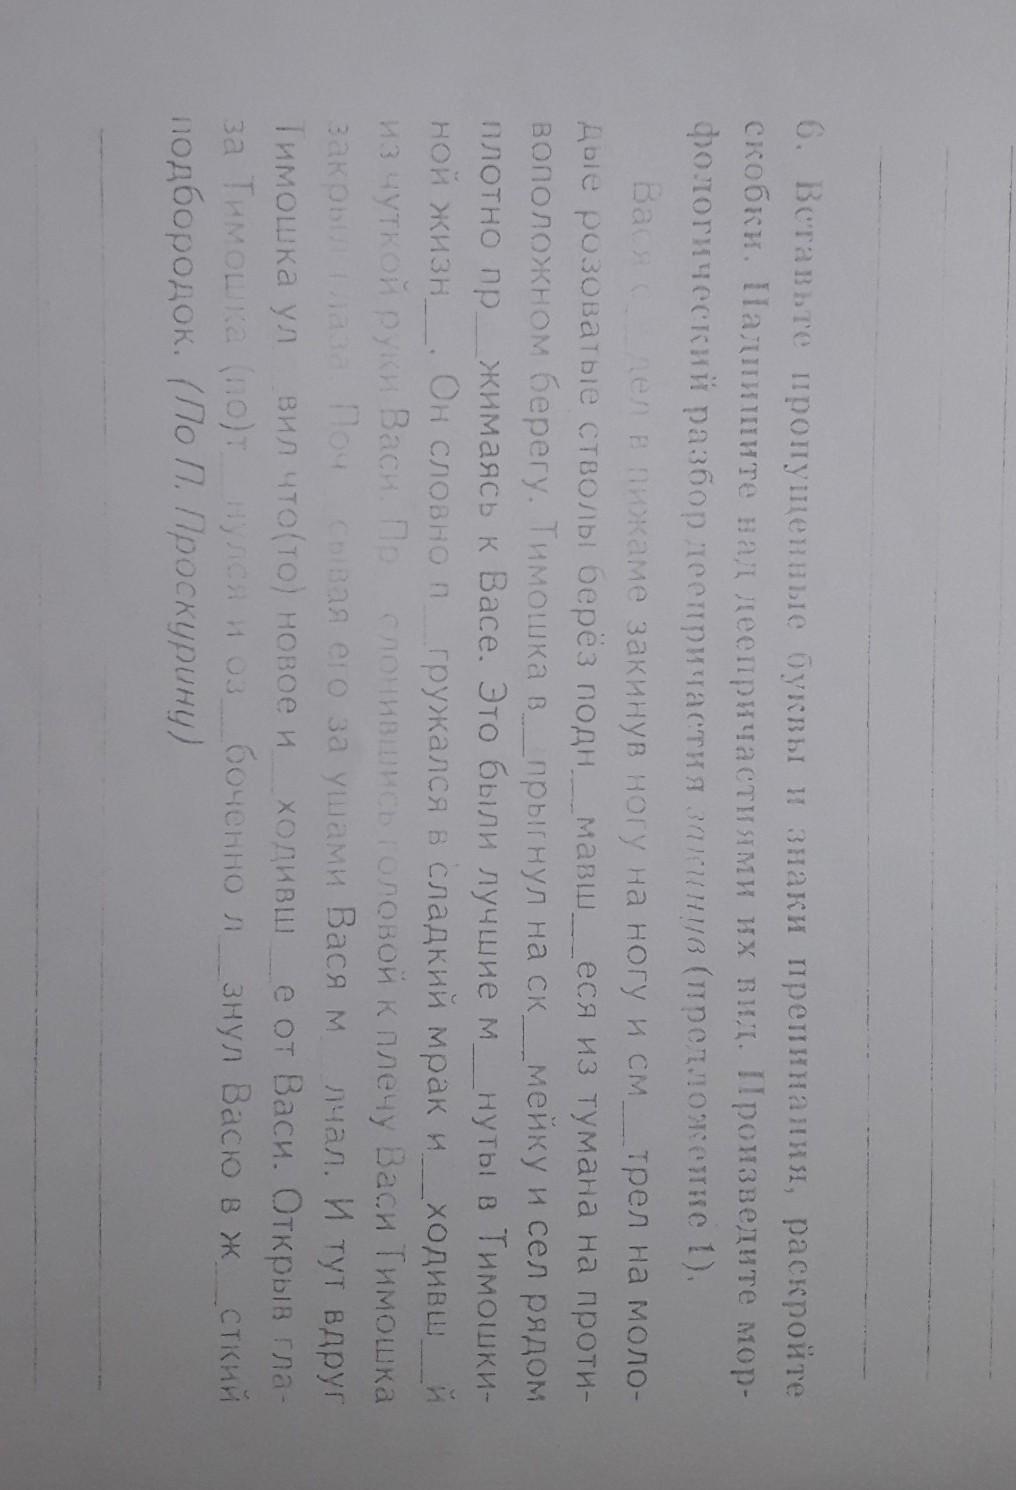 6. Вставьте пропущенные буквы и знаки препинания, раскройте
скобки. Надпишите над деепричастиями их вид. Произведите мор-
фологический разбор деепричастия закинув (предложение 1).
Вася с__дел в пижаме закинув ногу на ногу и см__трел на моло-
дые розоватые стволы берёз подн__мавш__еся из тумана на проти-
воположном берегу. Тимошка в__прыгнул на ск__мейку и сел рядом
плотно пр__жимаясь к Васе. Это были лучшие м__нуты в Тимошки-
ной жизн__. Он словно п__гружался в сладкий мрак и__ходивш__й
из чуткой руки Васи. Пр__слонившись головой к плечу Васи Тимошка
закрыл глаза. Поч__сывая его за ушами Вася м__лчал. И тут вдруг
Тимошка ул__вил что(то) новое и__ходивш__е от Васи. Открыв гла-
за Тимошка (по)т__нулся и оз__боченно л__знул Васю в ж__сткий
подбородок. (По П. Проскурину)